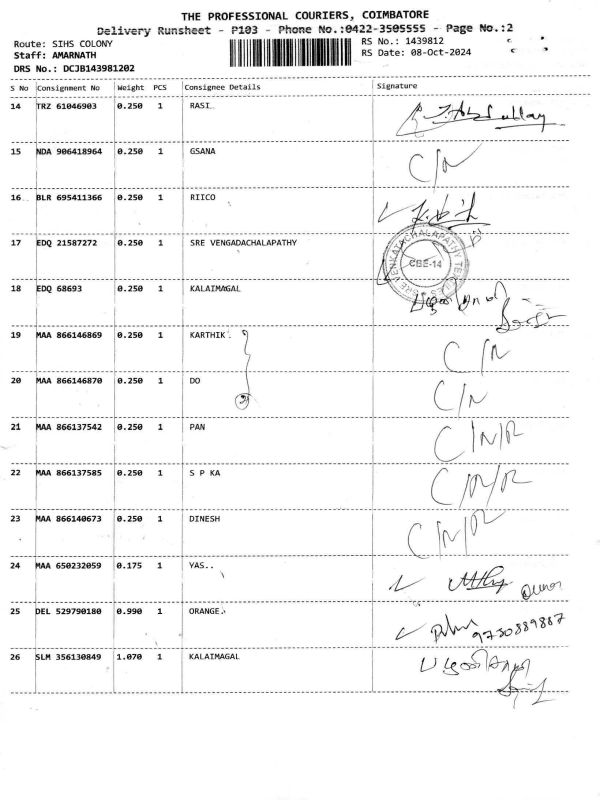 THE PROFESSIONAL COURIERS, COIMBATORE
Delivery Runsheet - P103 - Phone No.:0422-3505555 - Page No.:2
Route: SIHS COLONY RS No.: 1439812
Staff: AMARNATH RS Date: 08-Oct-2024
DRS No.: DCJB143981202
S No Consignment No Weight PCS Consignee Details Signature
14 TRZ 61046903 0.250 1 RASI
15 NDA 906418964 0.250 1 GSANA C/N
16 BLR 695411366 0.250 1 RIICO
17 EDQ 21587272 0.250 1 SRE VENGADACHALAPATHY
SRE VENKATACHALAPATHY TEXTILES CBE-14
18 EDQ 68693 0.250 1 KALAIMAGAL
19 MAA 866146869 0.250 1 KARTHIK. C/N
20 MAA 866146870 0.250 1 DO C/N
21 MAA 866137542 0.250 1 PAN C/N/R
22 MAA 866137585 0.250 1 S P KA C/N/R
23 MAA 866140673 0.250 1 DINESH C/N/R
24 MAA 650232059 0.175 1 YAS..
25 DEL 529790180 0.990 1 ORANGE. 9750889887
26 SLM 356130849 1.070 1 KALAIMAGAL